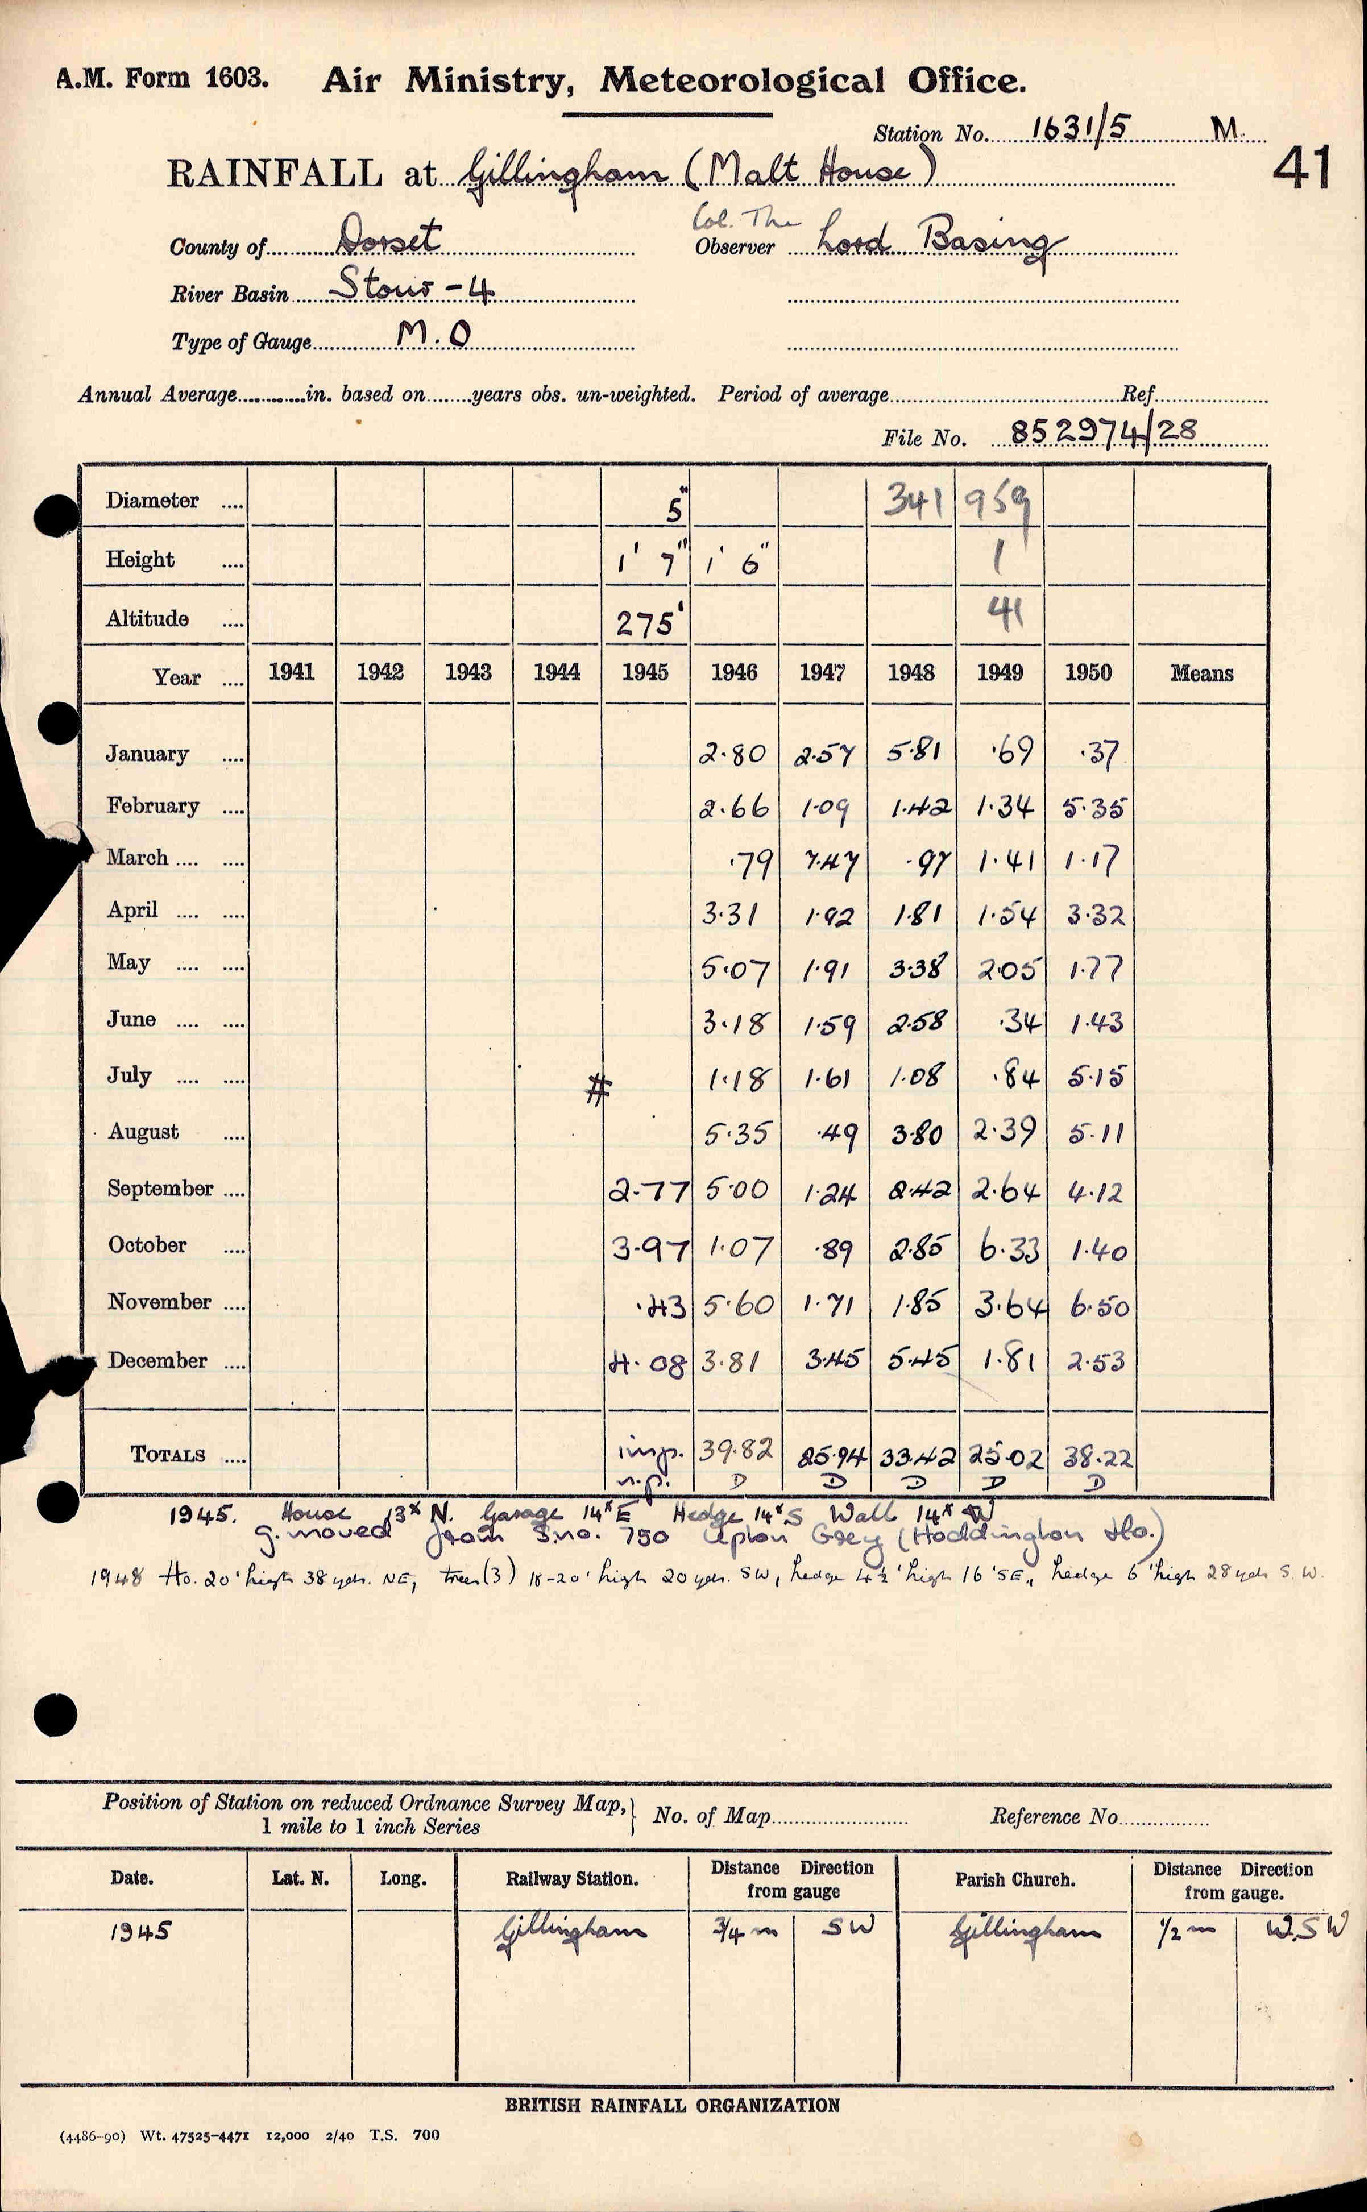 A.M. Form 1603. Air Ministry, Meteorological Office.
Station No. 1631/5 M.
41
RAINFALL at Gillingham (Malt House)
Col. The
County of Dorset Observer Lord Basing
River Basin Stour - 4
Type of Gauge M.O
Annual Average in. based on years obs. un-weighted. Period of average Ref.
File No. 852974/28
Diameter 5" 341 959
Height 1' 7" 1' 6" 1
Altitude 275' 41
Year 1941 1942 1943 1944 1945 1946 1947 1948 1949 1950 Means
January 2.80 2.57 5.81 .69 .37
February 2.66 1.09 1.42 1.34 5.35
March .79 7.47 .97 1.41 1.17
April 3.31 1.92 1.81 1.54 3.32
May 5.07 1.91 3.38 2.05 1.77
June 3.18 1.59 2.58 .34 1.43
July # 1.18 1.61 1.08 .84 5.15
August 5.35 .49 3.80 2.39 5.11
September 2.77 5.00 1.24 2.42 2.64 4.12
October 3.97 1.07 .89 2.85 6.33 1.40
November .43 5.60 1.71 1.85 3.64 6.50
December 4.08 3.81 3.45 5.45 1.81 2.53
TOTALS imp. 39.82 25.94 33.42 25.02 38.22
n.p. D D D D D
1945. House 13x N. Garage 14x E Hedge 14x S Wall 14x W
g. moved from S.no. 750 Upton Grey (Hoddington Ho.)
1948 Ho. 20' high 38 yds. NE, trees (3) 18-20' high 20 yds. SW, hedge 4½' high 16' SE, hedge 6' high 28 yds S.W.
Position of Station on reduced Ordnance Survey Map, No. of Map Reference No.
1 mile to 1 inch Series
Date. Lat. N. Long. Railway Station. Distance Direction from gauge Parish Church. Distance Direction from gauge.
1945 Gillingham 3/4 m SW Gillingham 1/2 m W.SW
BRITISH RAINFALL ORGANIZATION
(4486-90) Wt. 47525-4471 12,000 2/40 T.S. 700